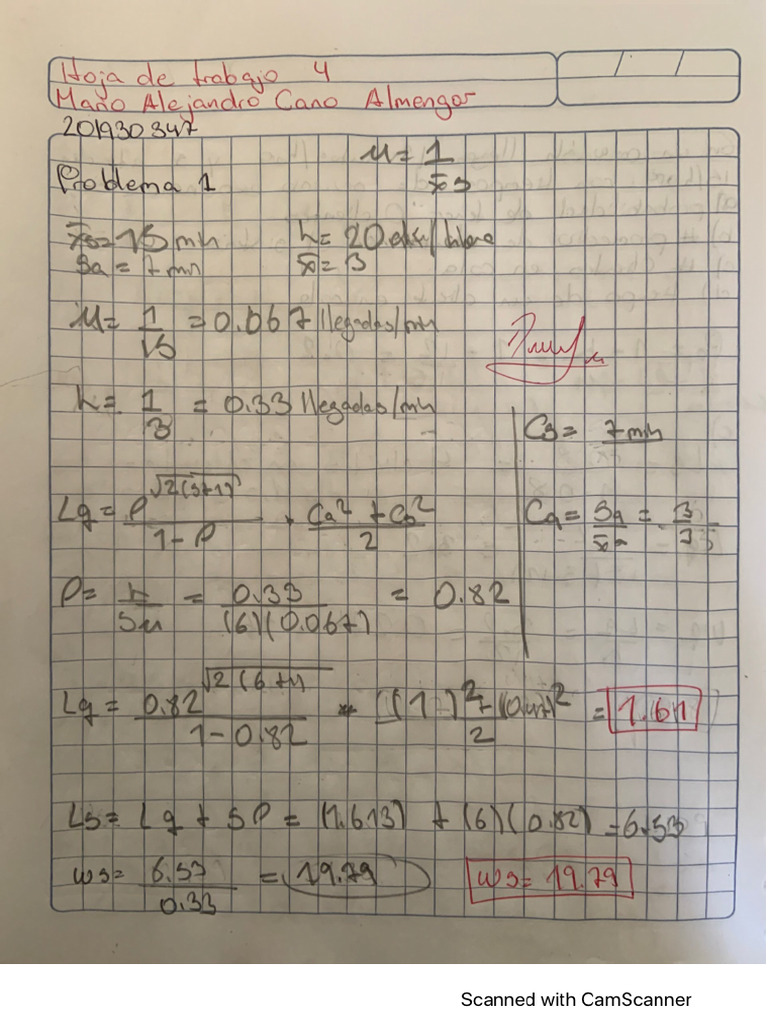 Hoja de trabajo 4
Mario Alejandro Cano Almengor
201930347
μ = 1 / x̄s
Problema 1
x̄s = 15 min
λ = 20 / hora
Sa = 7 min
x̄ = 3
μ = 1/15 = 0.067 llegadas/min
λ = 1/3 = 0.33 llegadas/min
Cs = 7min
Lq = ρ^√2(s+1) / 1-ρ · Ca² + Cs² / 2
Ca = Sa / x̄a = 3 / 3
ρ = λ / Sμ = 0.33 / (6)(0.067) = 0.82
Lq = 0.82^√2(6+1) / 1-0.82 * (1)² + (0.47)² / 2 = 1.611
Ls = Lq + Sρ = (1.613) + (6)(0.82) = 6.53
Ws = 6.53 / 0.33 = 19.79
Ws = 19.79
Scanned with CamScanner